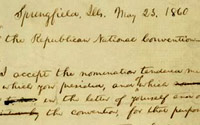 Springfield, Ills. May 23, 1860
the Republican National Convention
I accept the nomination tendered me
which you presided, and which
in the letter of yourself and
the convention, for that purpose